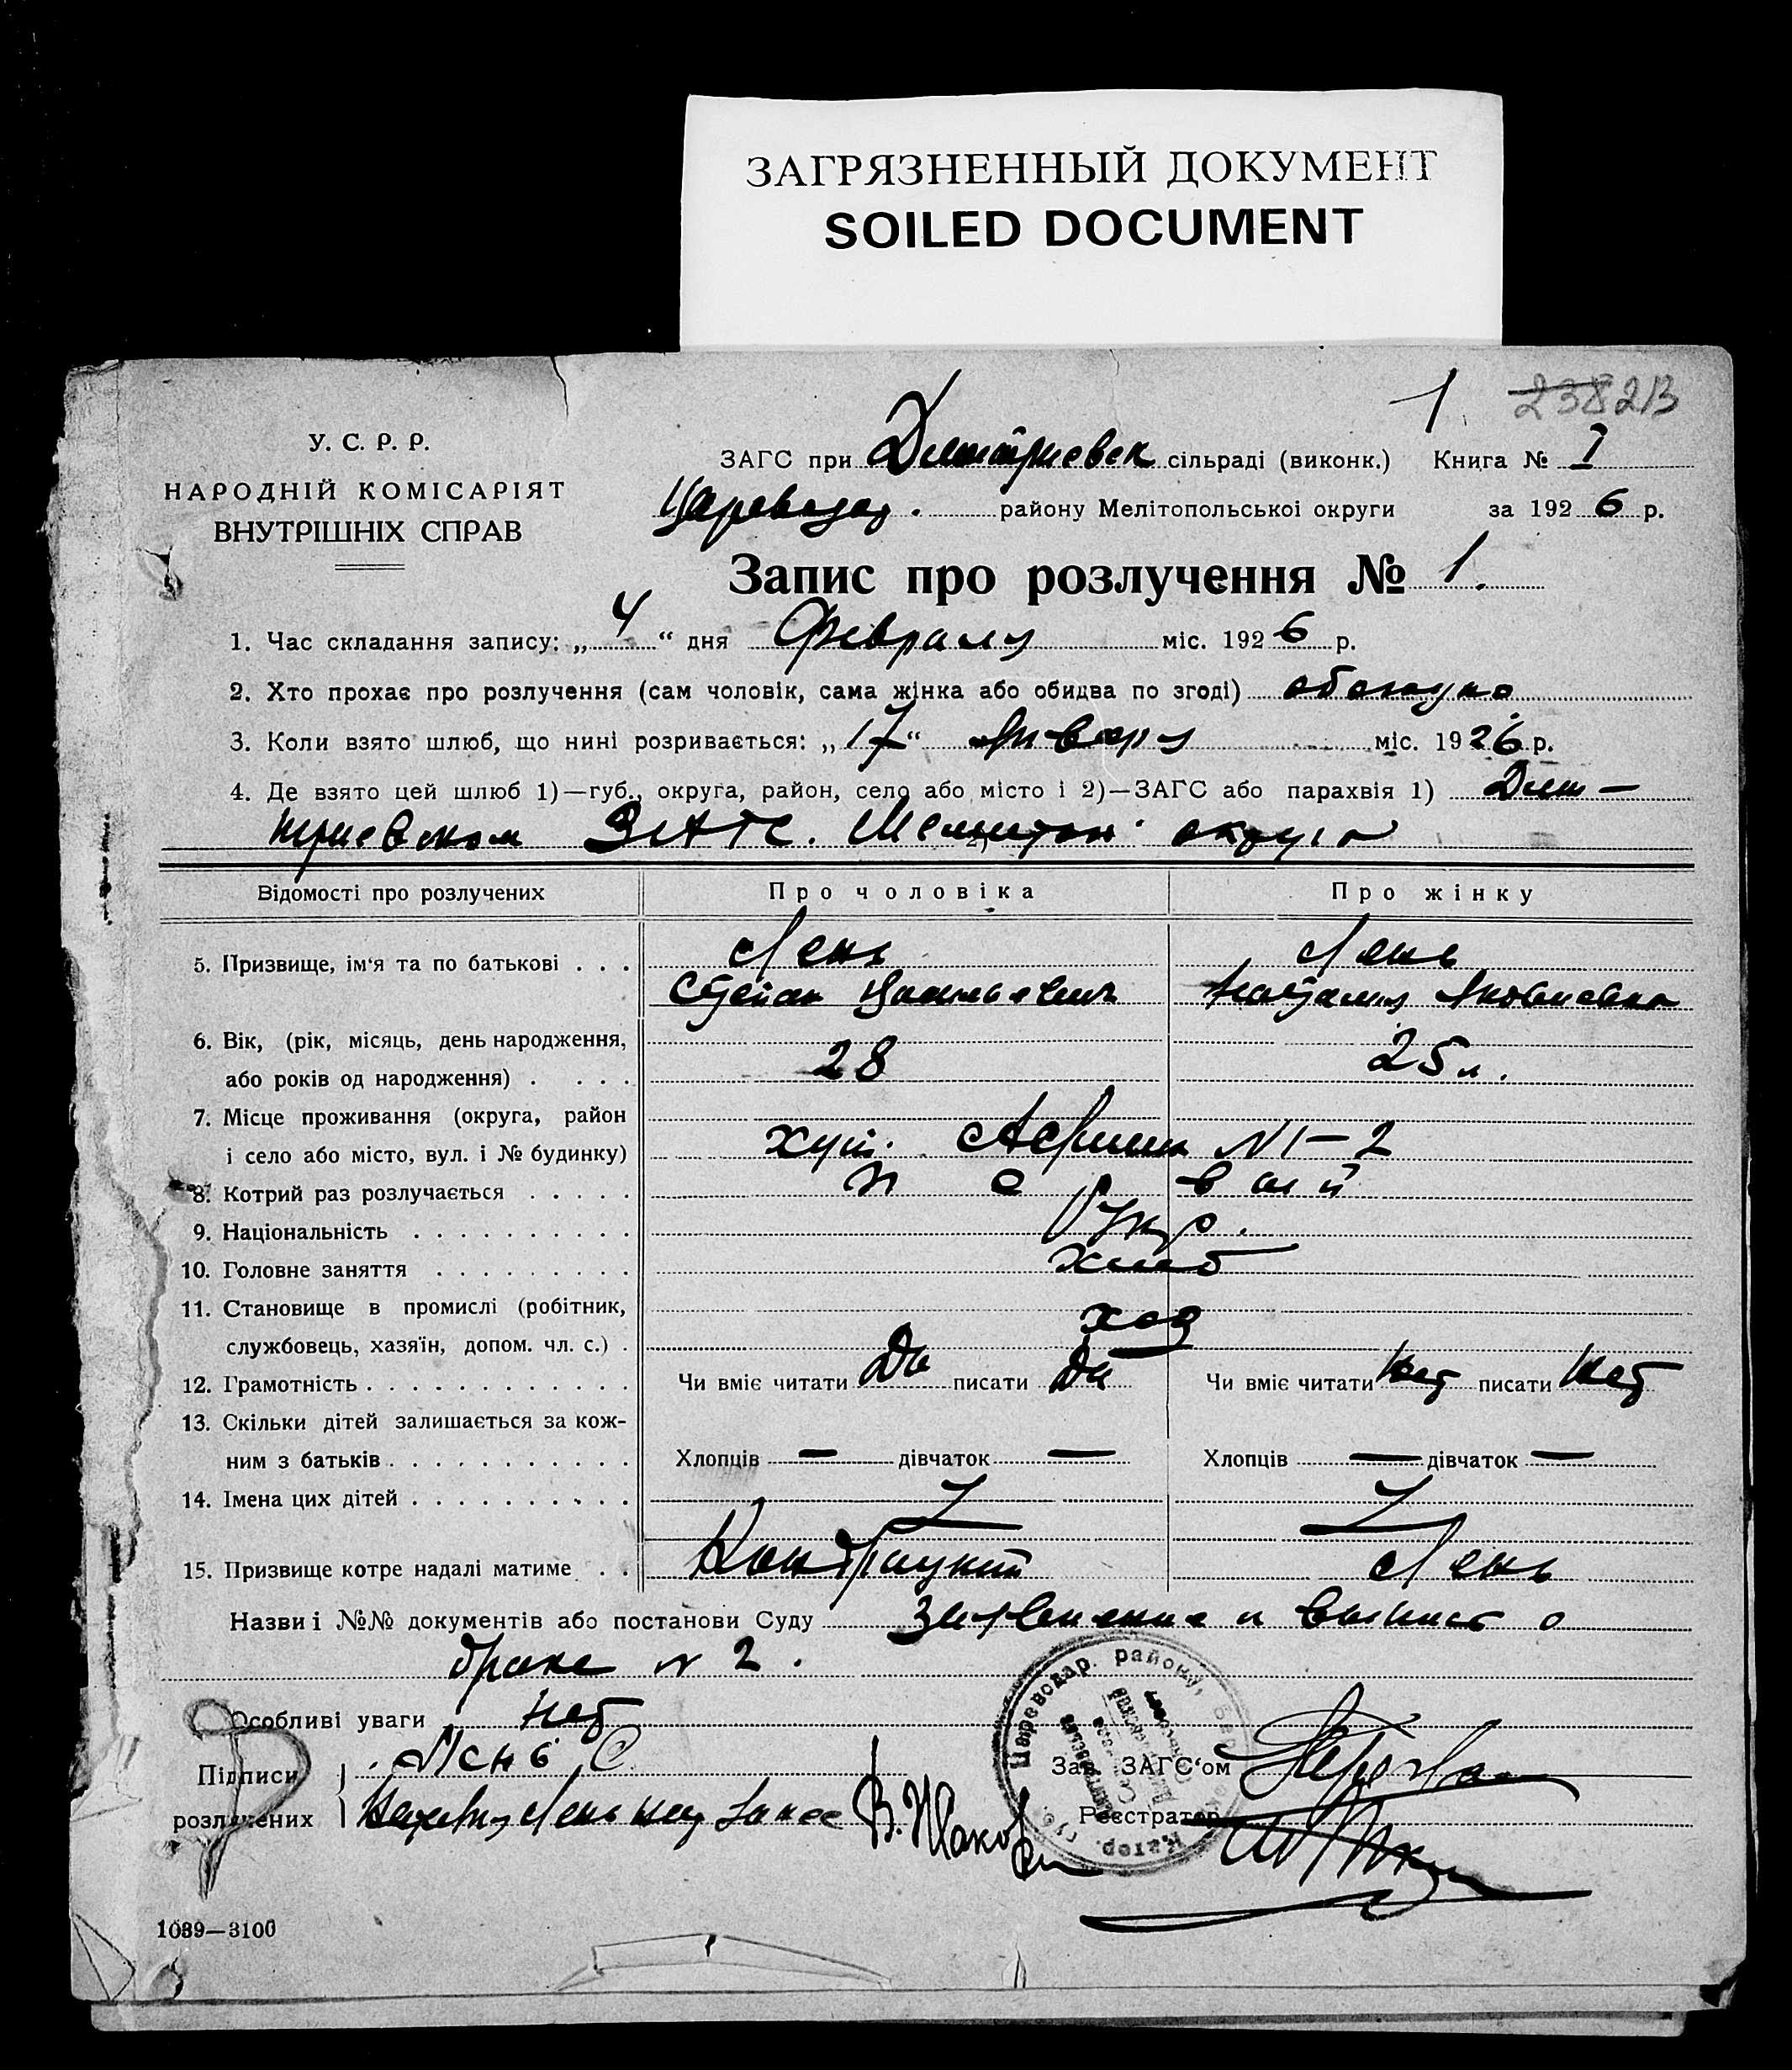 ЗАГРЯЗНЕННЫЙ ДОКУМЕНТ
SOILED DOCUMENT
1 2382B
У. С. Р. Р.
НАРОДНІЙ КОМІСАРІЯТ
ВНУТРІШНІХ СПРАВ
ЗАГС при Дмитриевск сільраді (виконк.) Книга № I
Царевод. району Мелітопольської округи за 1926 р.
Запис про розлучення № 1.
1. Час складання запису: „4“ дня Февраля міс. 1926 р.
2. Хто прохає про розлучення (сам чоловік, сама жінка або обидва по згоді) обоюдно
3. Коли взято шлюб, що нині розривається: „17“ января міс. 1926 р.
4. Де взято цей шлюб 1)—губ., округа, район, село або місто і 2)—ЗАГС або парахвія 1) Дми-
триевском ЗАГС. Мелитоп. округа
Відомості про розлучених Про чоловіка Про жінку
5. Призвище, ім‘я та по батькові . . . Лень Лень
Степан Васильевич Наталия Яковлевна
6. Вік, (рік, місяць, день народження,
або років од народження) . . . . 28 25 л.
7. Місце проживання (округа, район
і село або місто, вул. і № будинку) хут. N1-2
8. Котрий раз розлучається . . . . . первый
9. Національність . . . . . . . . . . Укр.
10. Головне заняття . . . . . . . . . хлеб
11. Становище в промислі (робітник,
службовець, хазяїн, допом. чл. с.) . хоз
12. Грамотність . . . . . . . . . . . . Чи вміє читати Да писати Да Чи вміє читати Нет писати Нет
13. Скільки дітей залишається за кож-
ним з батьків . . . . . . . . . . . Хлопців — дівчаток — Хлопців — дівчаток —
14. Імена цих дітей . . . . . . . . . .
15. Призвище котре надалі матиме . . Лень
Назви і №№ документів або постанови Суду Заявление и выпись о
браке N 2.
Особливі уваги Нет
Підписи Лень С. Зав. ЗАГС‘ом
розлучених Лень Реєстратор
Царевод. району,
1039—3100